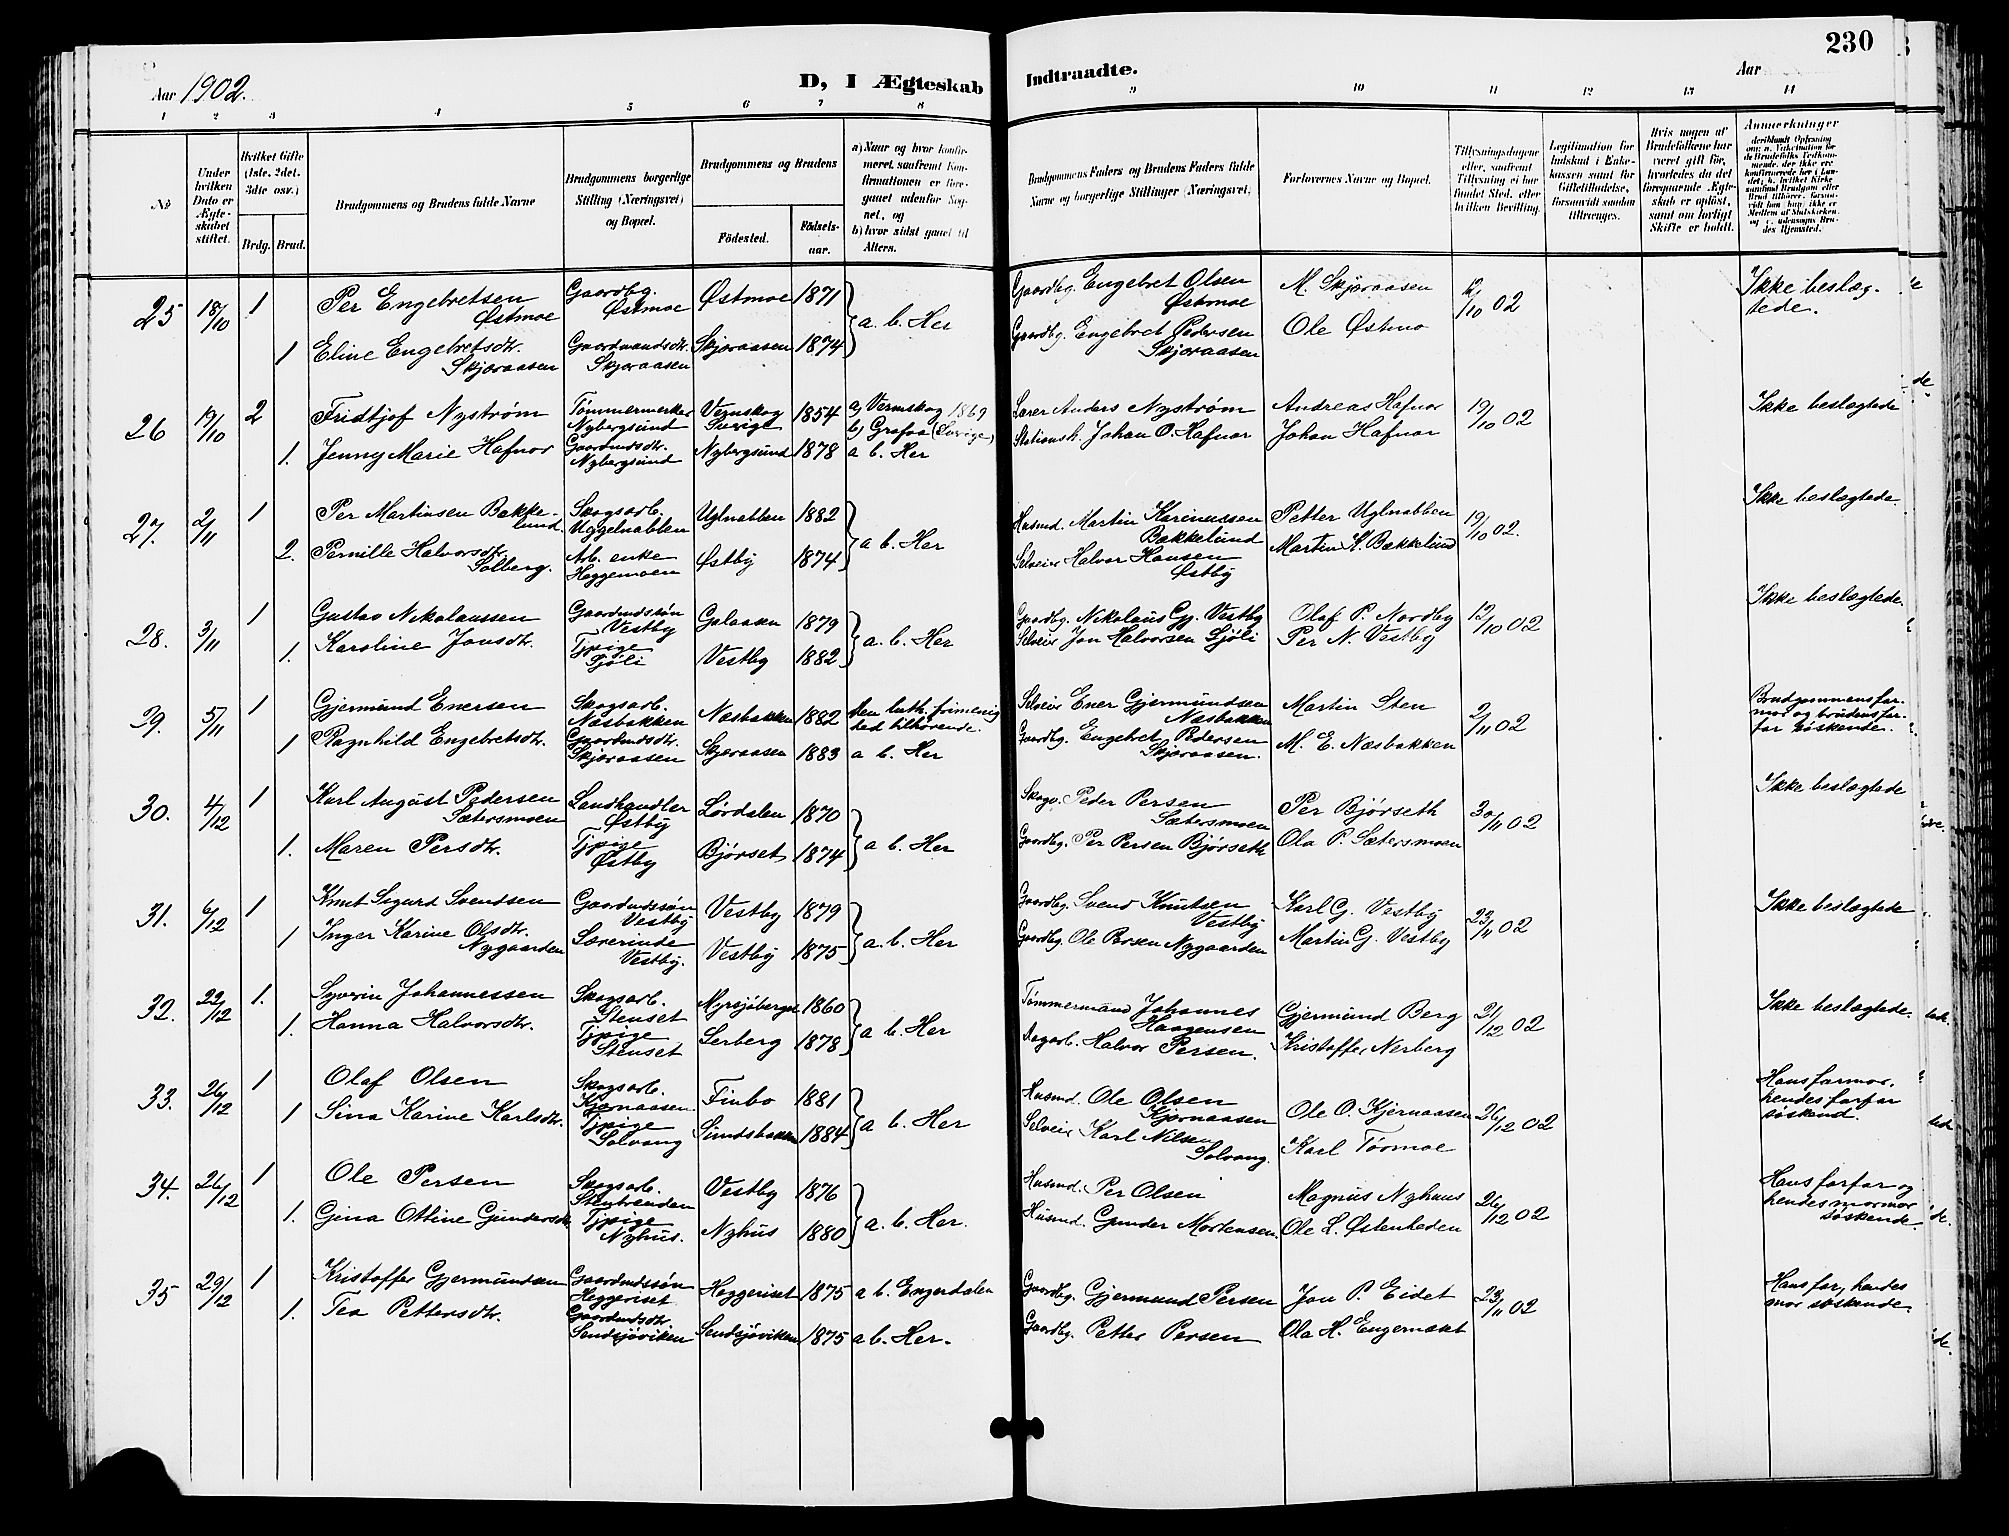 230
Aar 1902.
D, I Ægteskab Indtraadte.
Aar
1 2 3 4 5 6 7 8 9 10 11 12 13 14
No
Under hvilken Dato er Ægteskabet stiftet.
Hvilket Gifte (1ste, 2det, 3die osv.)
Brdg. Brud.
Brudgommens og Brudens fulde Navne
Brudgommens borgerlige Stilling (Næringsvei) og Bopæl.
Brudgommens og Brudens
Födested. Födselsaar.
a) Naar og hvor konfirmeret, saafremt Konfirmationen er foregaaet udenfor Sognet, og
b) hvor sidst gaaet til Alters.
Brudgommens Faders og Brudens Faders fulde Navne og borgerlige Stillinger (Næringsvei)
Forlovernes Navne og Bopæl.
Tillysningsdagene eller, saafremt Tillysning ei har fundet Sted, efter hvilken Bevilling.
Legitimation for Indskud i Enkekassen samt for Giftetilladelse, forsaavidt saadan tiltrænges.
Hvis nogen af Brudefolkene har været gift før, hvorledes da det foregaaende Ægteskab er opløst, samt om lovligt Skifte er holdt.
Anmerkninger
25 18/10 1 Per Engebretsen Østmoe Gaardbg. Østmoe Østmoe 1871 a. b. Her Gaardbg. Engebret Olsen Østmoe M. Skjøraasen 12/10 02 Ikke beslægtede.
1 Eline Engebretsdtr. Skjæraasen Gaardmandsdtr. Skjæraasen Skjøraasen 1874 Gaardbg. Engebret Pedersen Skjøraasen Ole Østmo
26 19/10 2 Fridtjof Nystrøm Tømmermerker Nybergsund Vermskog Sverige 1854 a) Vermskog 1869 b) Grafaa (Sverige) Lærer Anders Nystrøm Andreas Hafnor 19/10 02 Ikke beslægtede
1. Jenny Marie Hafnor Gaardmdsdtr. Nybergsund Nybergsund 1878 a b. Her Stationsh. Johan O. Hafnor Johan Hafnor
27. 2/11 1 Per Martinsen Bækkelund Skogsarb. Uggelnabben Uglnabben 1882 a b. Her Husmd. Martin Karinussen Bækkelund Petter Uglnabben 19/10 02. Ikke beslægtede
2. Pernille Halvorsdtr. Solberg. Arb. enke Heggemoen Østby 1874 Selveier Halvor Hansen Østby Martin K. Bækkelund
28. 3/11 1 Gustav Nikolaussen Gaardmdssøn Vestby Galaasen 1879 a. b. Her Gaardbg. Nikolaus Gj. Vestby Olaf P. Nordby 12/10 02 Ikke beslægtede.
1. Karoline Jonsdtr. Tjpige Sjøli Vestby 1882 Selveier Jon Halvorsen Sjøli Per N. Vestby
29. 5/11 1 Gjermund Enersen Skogsarb. Næsbakken Næsbakken 1882 den luth. frimenighed tilhørende. Selveier Ener Gjermundsen Næsbakken Martin Sten 2/11 02 Brudgommens farmor og brudens farfar søskende.
1 Ragnhild Engebretsdtr. Gaardmdsdtr. Skjæraasen Skjeraasen 1883 a b. Her Gaardbg. Engebret Pedersen Skjøraasen. M. E. Næsbakken
30. 4/12 1 Karl August Pedersen Sætersmoen Landhandler Østby Lørdalen 1870 a b. Her Skogv. Peder Persen Sætersmoen Per Bjørseth 30/11 02 Ikke beslægtede
1. Maren Persdtr. Tjpige Østby Bjørset 1874 Gaardbg. Per Persen Bjørseth Ola P. Sætersmoen
31. 6/12 1 Knut Sigurd Svendsen Gaardmdssøn Vestby Vestby 1879 a. b. Her Gaardbg. Svend Knutsen Vestby Karl G. Vestby 23/11 02 Ikke beslægtede
1 Inger Karine Olsdtr. Nygaarden Lærerinde Vestby. Vestby 1875 Gaardbg. Ole Persen Nygaarden Martin G. Vestby
32. 22/12 1. Syverin Johannessen Skogsarb. Stenset Myrsjøberget 1860 a b. Her Tømmermand Johannes Haagensen Gjermund Berg 21/12 02 Ikke beslægtede.
1. Hanna Halvorsdtr. Tjpige Stenset Lerberg 1878 Halvor Persen. Kristoffer Nerberg
33. 26/12 1 Olaf Olsen Skogsarb. Kjernaasen Finbo 1881 a b. Her Husmd. Ole Olsen Kjernaasen Ole O. Kjernaasen 26/12 02 Hans farmor, hendes farfar søskend.
1 Sina Karine Karlsdtr. Tjpige Solvang Sundsbakken 1884 Selveier Karl Nilsen Solvang. Karl Tørmoe
34. 26/12 1 Ole Persen Skogsarb. Stentrenden Vestby 1876 a. b. Her. Husmd. Per Olsen Magnus Nyhuus 26/12 02 Hans farfar og hendes mormor søskende.
1. Gina Ottine Gundersdtr. Tjpige Nyhus. Nyhus 1880 Husmd. Gunder Mortensen. Ole L. Østenheden
35 29/12 1 Kristoffer Gjermundsen Gaardmdssøn Heggeriset Heggeriset 1875 a b. Engerdalen Gaardbg. Gjermund Persen Jon P. Eidet 23/11 02 Hans far, hendes mor søskende.
1. Tea Pettersdtr. Gaardmdsdtr. Sendsjøviken Sendsjøviken 1875 a b. Her. Gaardbg. Petter Persen Ola H. Engernæset